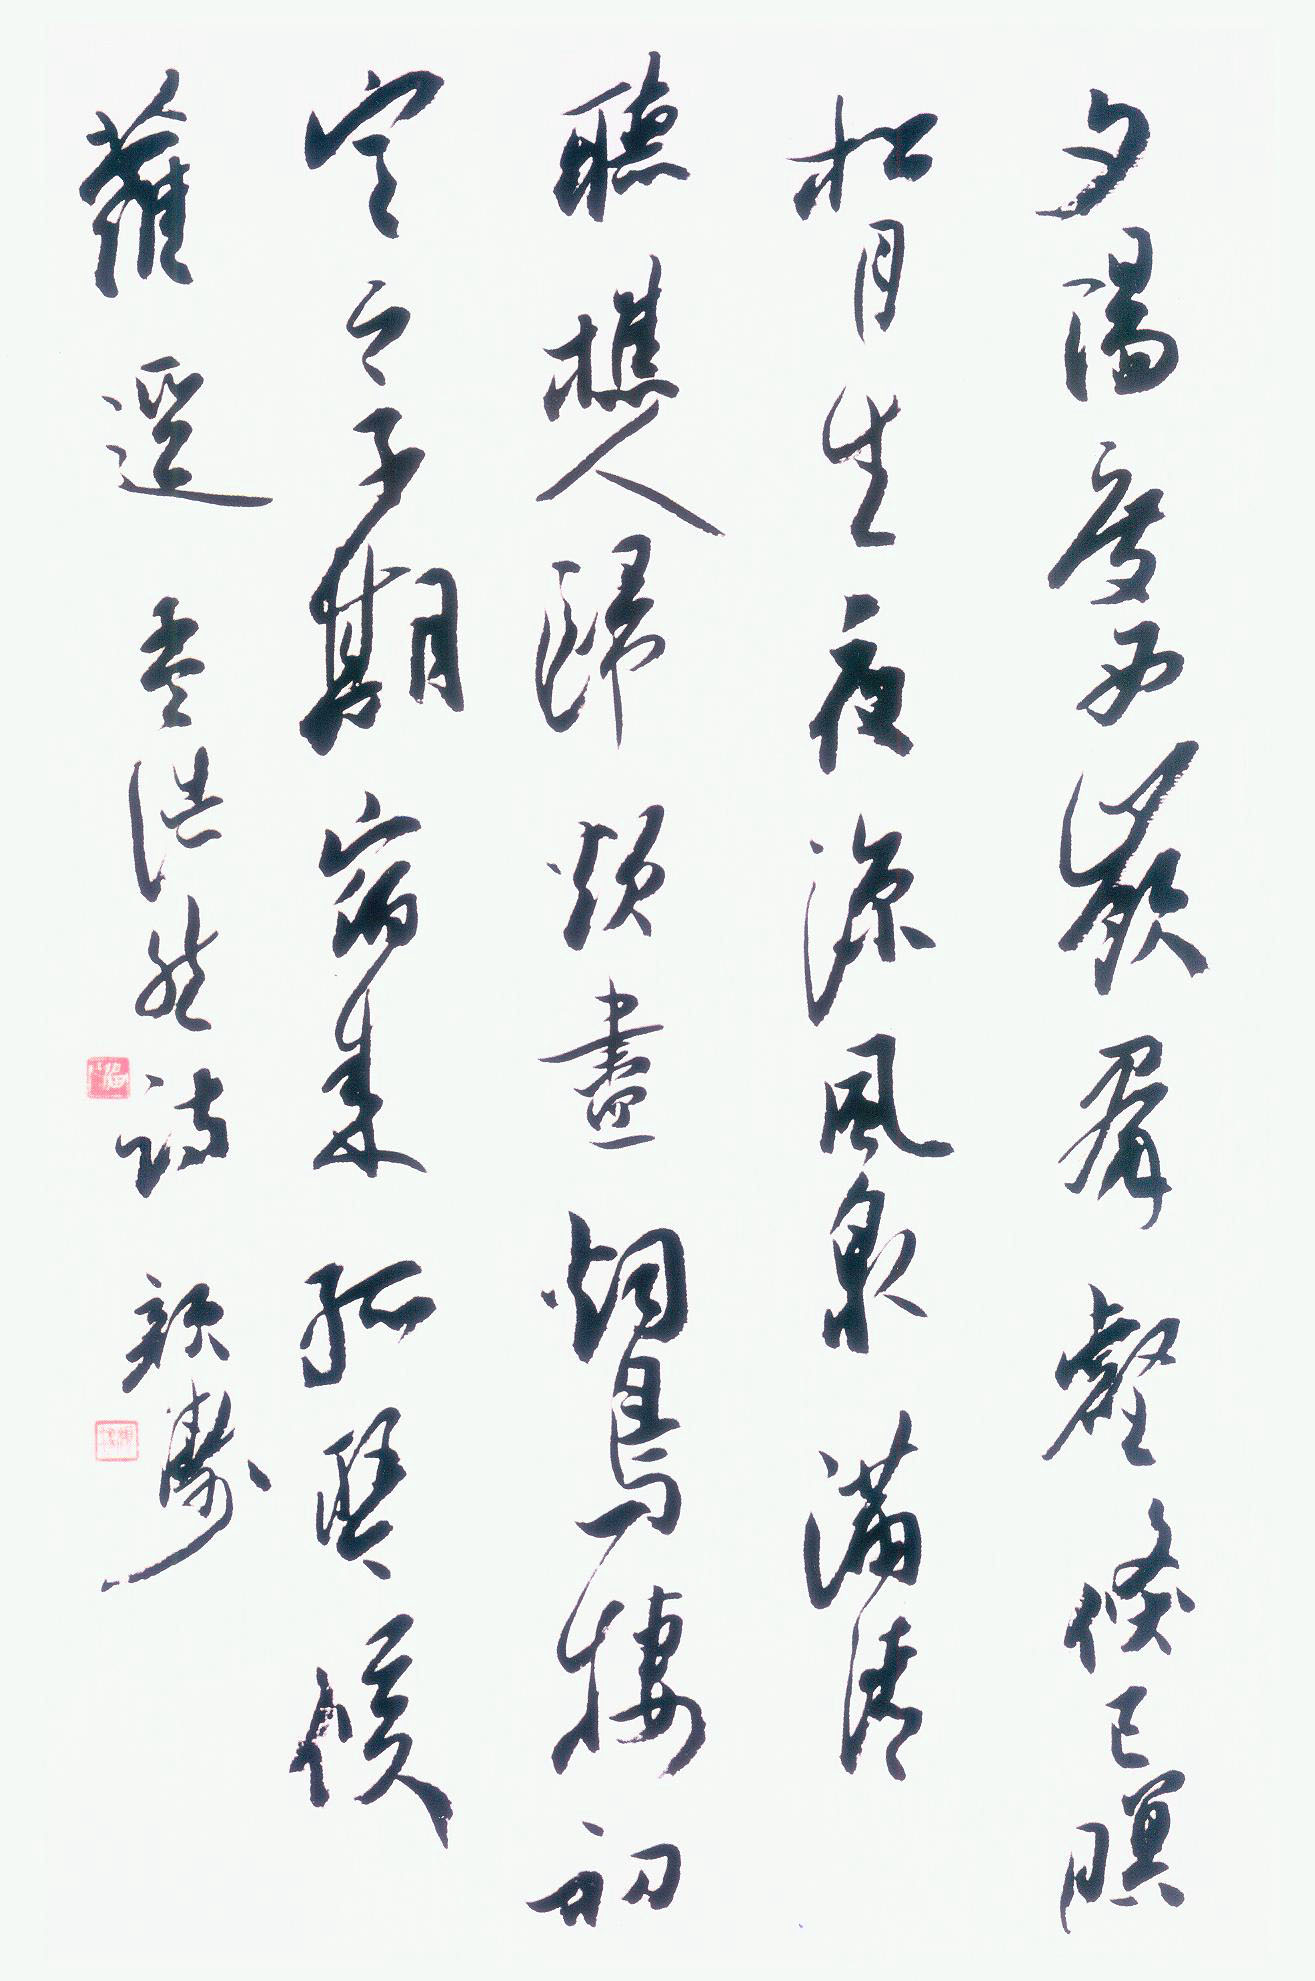 夕陽度西嶺羣壑倏已暝
松月生夜涼風泉滿清
聽樵人歸欲盡烟鳥棲初
定之子期宿來孤琴候
蘿逕 孟浩然詩